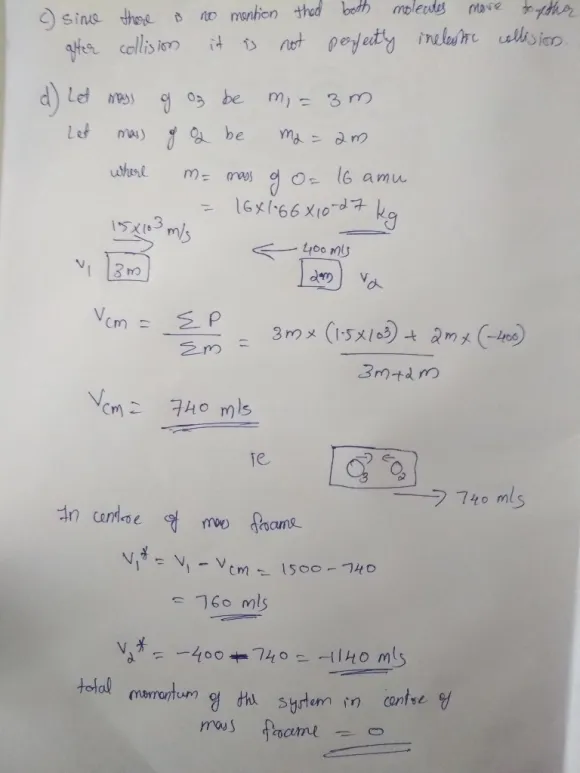 c) Since there is no mention that both molecules move together
after collision it is not perfectly inelastic collision.
d) Let mass of O3 be m1 = 3m
Let mass of O2 be m2 = 2m
where m = mass of O = 16 amu
= 16×1.66×10-27 kg
1.5×10^3 m/s
400 m/s
V1 3m 2m V2
Vcm = ΣP / Σm = 3m × (1.5×10^3) + 2m × (-400) / 3m+2m
Vcm = 740 m/s
ie
O3 O2
740 m/s
In centre of mas frame
V1* = V1 - Vcm = 1500 - 740
= 760 m/s
V2* = -400 - 740 = -1140 m/s
total momentum of the system in centre of
mass frame = 0